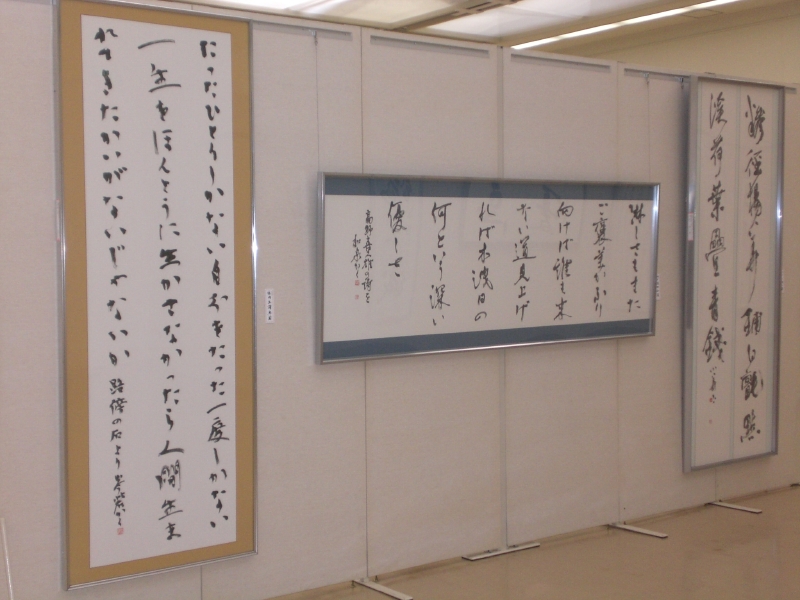 たったひとりしかない自分をたった一度しかない
一生をほんとうに生かさなかったら人間生ま
れてきたかいがないじゃないか 路傍の石より
淋しさもまた
ご褒美がふり
向けば誰も来
ない道見上げ
れば木洩日の
何という深い
優しさ
高野喜久雄の詩を
糝徑楊花鋪白氈 點
溪荷葉疊青錢